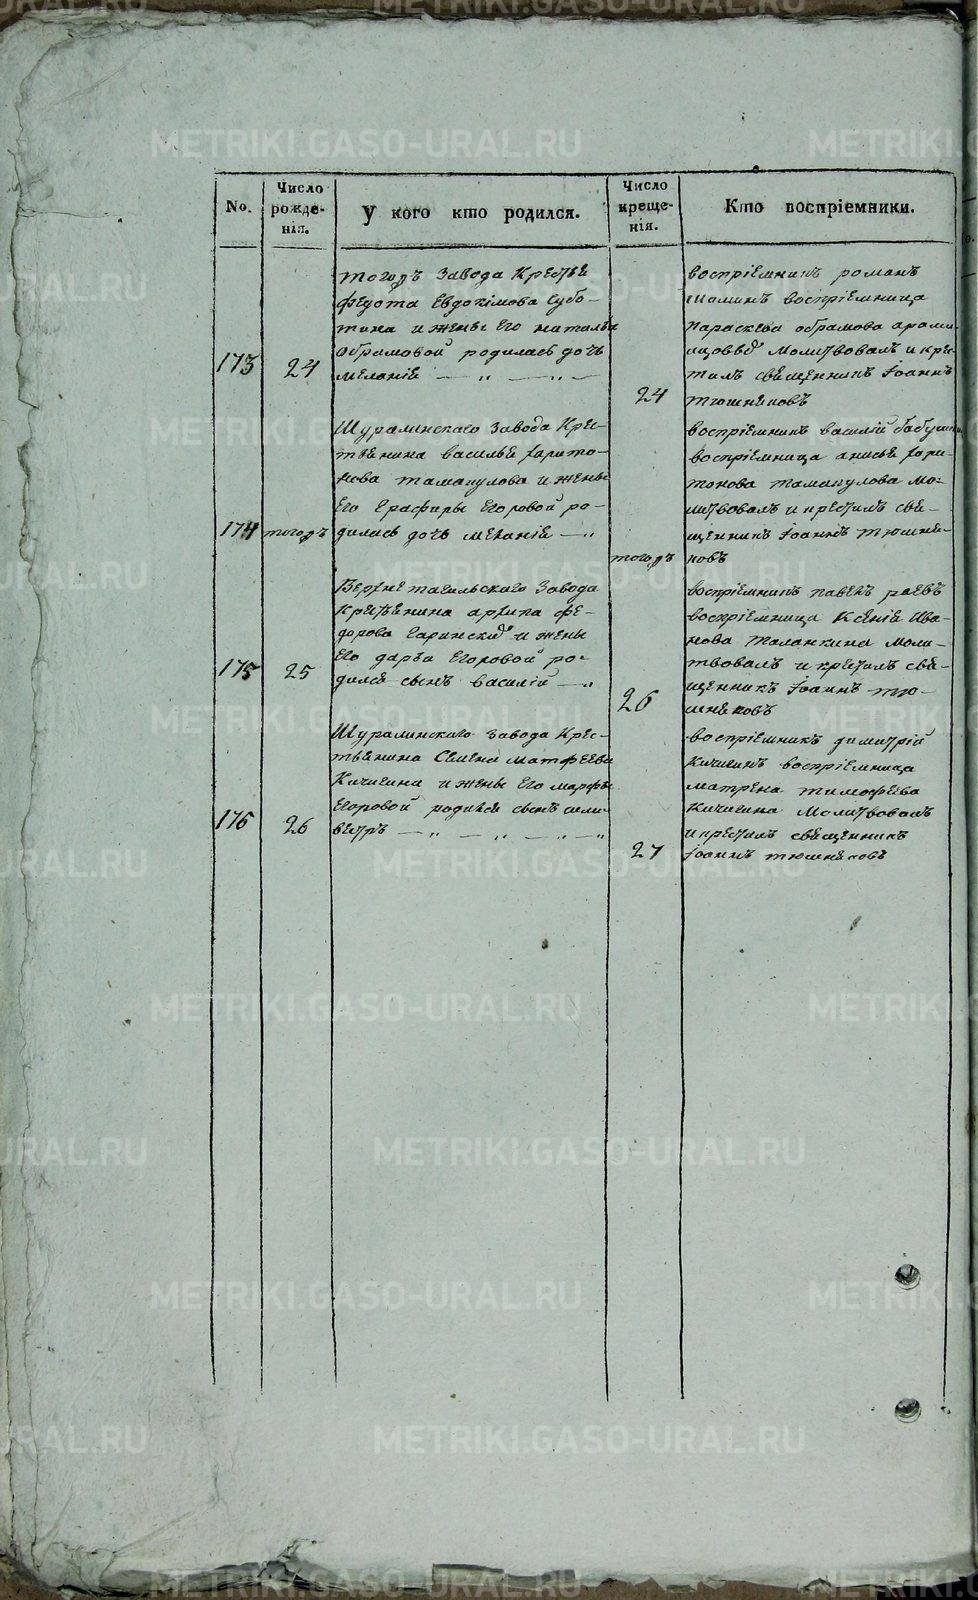 No.
Число рожде- нія.
У кого кто родился.
Число креще- нія.
Кто воспріемники.
173
24
тогожъ завода Крестье
Федота Евдокімова Субо-
тина и жены Его наталья
Обрамовой родилась дочь
мѣланіѣ
24
воспріемникъ романъ
воспріемница
параскева обрамова
молитвовалъ и крес-
тилъ священникъ Іоаннъ
тюшняковъ
174
тогожъ
Шуралинскаго завода Крес-
тьянина василья харито-
нова таманулова и жены
Его Ерафиры Егоровой ро-
дилась дочь меланія
тогожъ
воспріемникъ василій бабушки
воспріемница анисья хари-
тонова таманулова мо-
литвовалъ и крестилъ свя-
щенникъ Іоаннъ тюшня-
ковъ
175
25
Верхнетагильскаго завода
Крестьянина архипа фе-
дорова Гаринских и жены
Его дарьи Егоровой ро-
дился сынъ василій
26
воспріемникъ павелъ раевъ
воспріемница Ксѣнія Ива-
нова Таланкина моли-
твовалъ и крестилъ свя-
щенникъ Іоаннъ тю-
шняковъ
176
26
Шуралинскаго завода Крес-
тьянина Семена матфеева
Кичигина и жены Его марфы
Егоровой родился сынъ сели-
вестръ
27
воспріемникъ димитрій
Кичигинъ воспріемница
матрена тимофеева
Кичигина молитвовалъ
и крестилъ священникъ
Іоаннъ тюшняковъ
METRIKI.GASO-URAL.RU